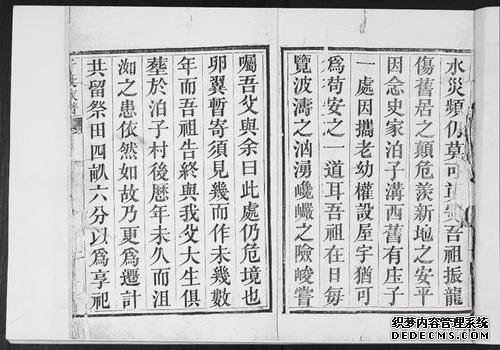 水災頻仍莫可
吾祖振龍
傷舊居之顛危羨新地之安平
因念史家泊子溝西舊有庄子
一處因攜老幼權設屋宇猶可
為苟安之一道耳吾祖在日每
覽波濤之汹湧巉巘之險峻嘗
囑吾父與余曰此處仍危境也
卵翼暫寄須見幾而作未幾數
年而吾祖告終與我父大生俱
塟於泊子村後歷年未久而沮
洳之患依然如故乃更為遷計
共留祭田四畝六分以為享祀
织梦内容管理系统
DEDECMS.COM